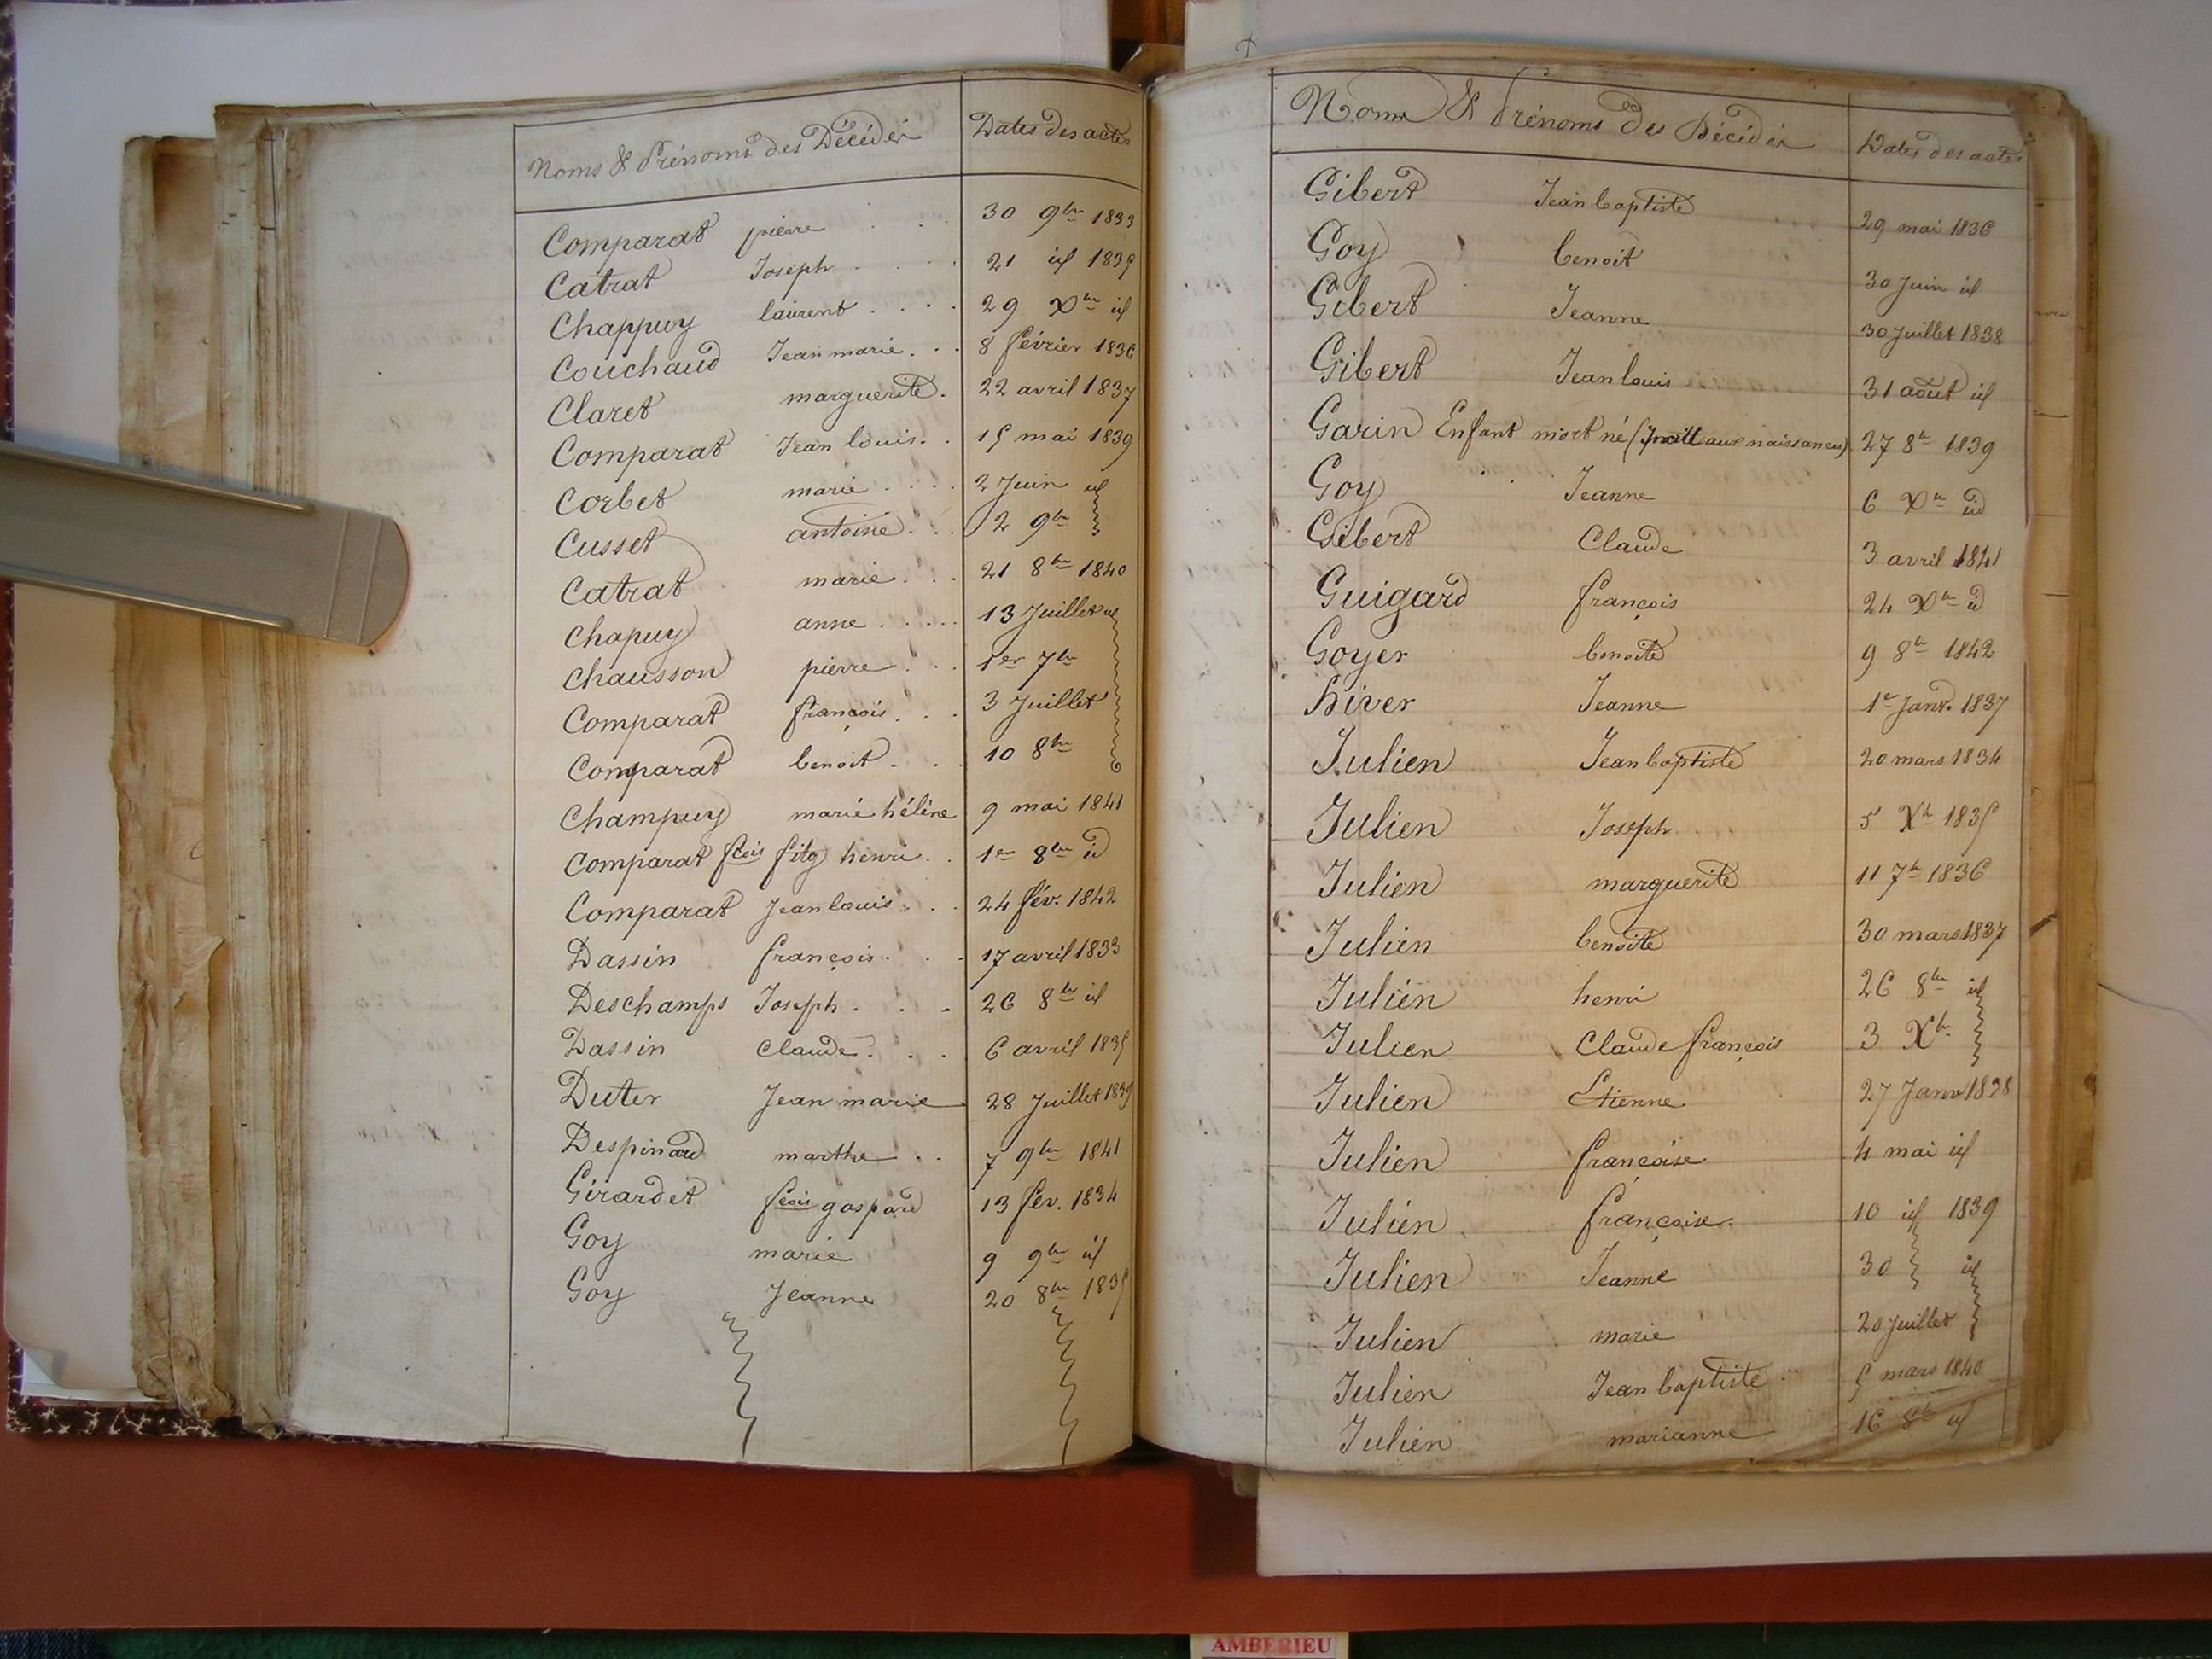 Noms & Prénoms des Décédés Dates des actes
Comparat pierre . . . 30 9bre 1833
Catrat Joseph . . . 21 id 1835
Chappuy laurent . . . . 29 Xbre id
Couchaud Jean marie . . . 8 février 1836
Claret marguerite . 22 avril 1837
Comparat Jean louis . . 15 mai 1839
Corbet marie . . . . 2 Juin id
Cusset antoine . . . 2 9bre
Catrat marie . . . 21 8bre 1840
Chapuy anne . . . . . 13 Juillet id
Chausson pierre . . . 1er 7bre
Comparat françois . . . 3 Juillet
Comparat benoit . . . 10 8bre
Champuy marie hélène 9 mai 1841
Comparat fcois henri . . 1er 8bre id
Comparat Jean louis . . . 24 fév. 1842
Dassin françois . . . 17 avril 1833
Deschamps Joseph . . . 26 8bre id
Dassin Claude . . . 6 avril 1835
Duter Jean marie 28 Juillet 1839
Despinard marthe . . 7 9bre 1841
Girardet fcois gaspard 13 fév. 1834
Goy marie 9 9bre id
Goy Jeanne 20 8bre 1835
Noms & Prénoms des Décédés Dates des actes
Gibert Jean baptiste 29 mai 1836
Goy benoit 30 Juin id
Gibert Jeanne 30 Juillet 1838
Gibert Jean louis 31 août id
Garin Enfant mort né (aux naissances) 27 8bre 1839
Goy Jeanne 6 Xbre id
Gibert Claude 3 avril 1841
Guigard françois 24 Xbre id
Goyer benoite 9 8bre 1842
hiver Jeanne 1er Janv. 1837
Julien Jean baptiste 20 mars 1834
Julien Joseph 5 Xbre 1835
Julien marguerite 11 7bre 1836
Julien benoite 30 mars 1837
Julien henri 26 8bre id
Julien Claude françois 3 Xbre
Julien Etienne 27 Janv 1838
Julien françoise 4 mai id
Julien françoise 10 id 1839
Julien Jeanne 30 id
Julien marie 20 Juillet
Julien Jean baptiste 5 mars 1840
Julien marianne 16 8bre id
AMBERIEU